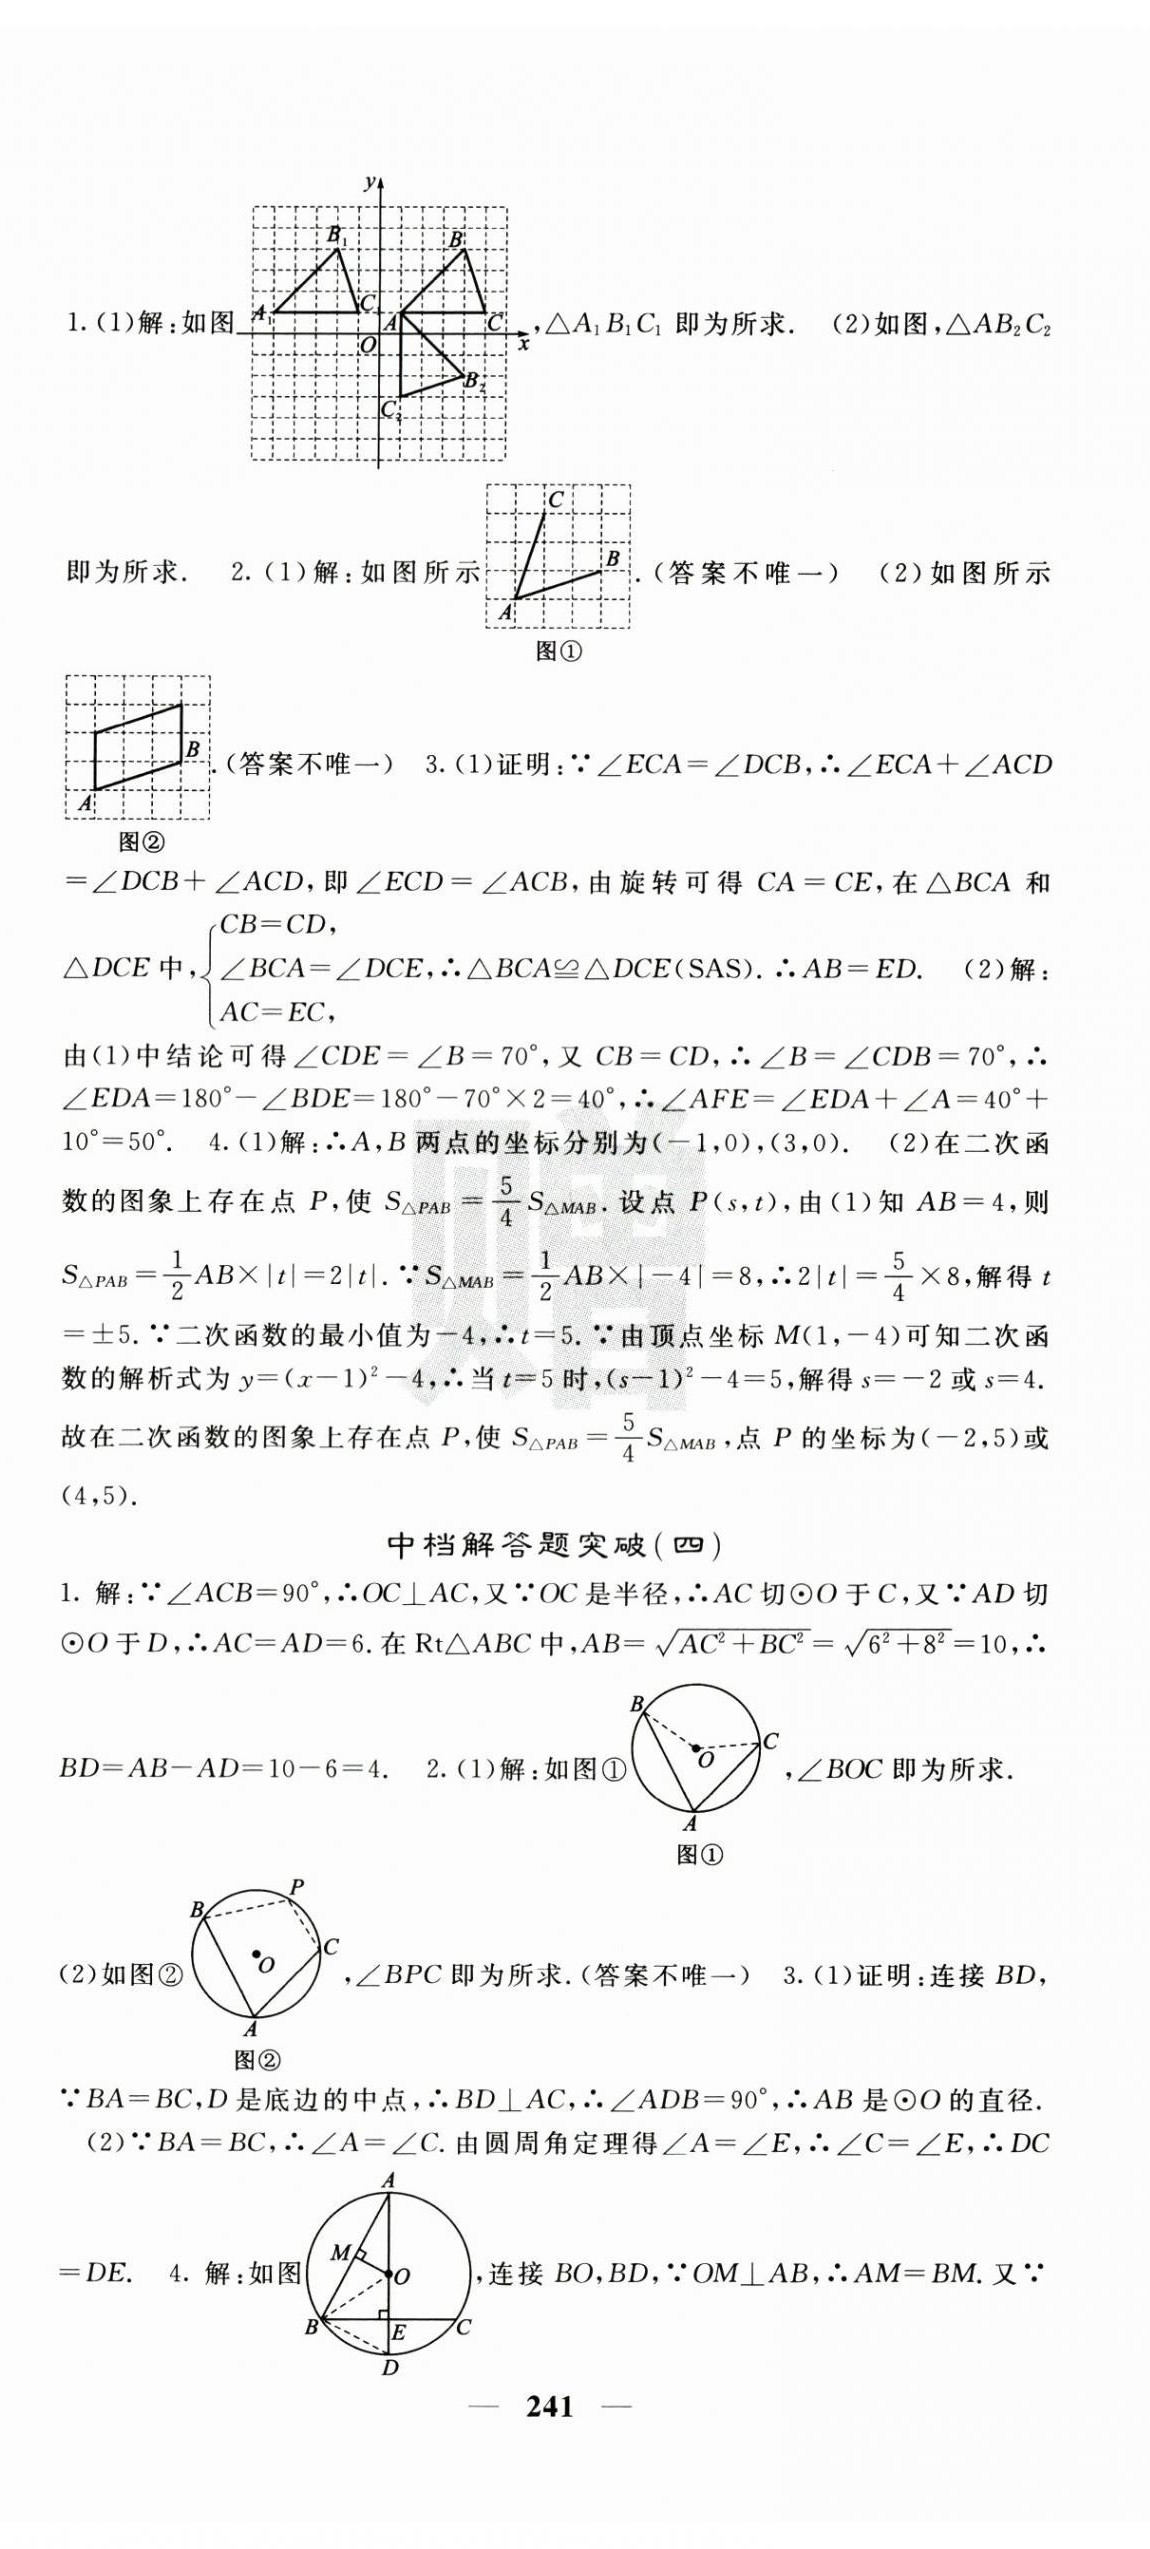 y
B₁ B
1. (1)解:如图 A₁ C₁ A C x ,△A₁B₁C₁ 即为所求. (2)如图,△AB₂C₂
O
B₂
C₂
C
即为所求. 2. (1)解:如图所示 B .(答案不唯一) (2)如图所示
A
图①
B .(答案不唯一) 3. (1)证明:∵∠ECA=∠DCB,∴∠ECA+∠ACD
A
图②
=∠DCB+∠ACD,即∠ECD=∠ACB,由旋转可得 CA=CE,在△BCA 和
CB=CD,
△DCE 中,{∠BCA=∠DCE,∴△BCA≌△DCE(SAS).∴AB=ED. (2)解:
AC=EC,
由(1)中结论可得∠CDE=∠B=70°,又 CB=CD,∴∠B=∠CDB=70°,∴
∠EDA=180°-∠BDE=180°-70°×2=40°,∴∠AFE=∠EDA+∠A=40°+
10°=50°. 4. (1)解:∴A,B 两点的坐标分别为(-1,0),(3,0). (2)在二次函
数的图象上存在点 P,使 S△PAB=5/4 S△MAB.设点 P(s,t),由(1)知 AB=4,则
S△PAB=1/2 AB×|t|=2|t|.∵S△MAB=1/2 AB×|-4|=8,∴2|t|=5/4×8,解得 t
=±5.∵二次函数的最小值为-4,∴t=5.∵由顶点坐标 M(1,-4)可知二次函
数的解析式为 y=(x-1)²-4,∴当 t=5 时,(s-1)²-4=5,解得 s=-2 或 s=4.
故在二次函数的图象上存在点 P,使 S△PAB=5/4 S△MAB,点 P 的坐标为(-2,5)或
(4,5).
中档解答题突破(四)
1. 解:∵∠ACB=90°,∴OC⊥AC,又∵OC 是半径,∴AC 切⊙O 于 C,又∵AD 切
⊙O 于 D,∴AC=AD=6.在 Rt△ABC 中,AB=√(AC²+BC²)=√(6²+8²)=10,∴
B
BD=AB-AD=10-6=4. 2. (1)解:如图① O C ,∠BOC 即为所求.
A
图①
P
B
(2)如图② O C ,∠BPC 即为所求.(答案不唯一) 3. (1)证明:连接 BD,
A
图②
∵BA=BC,D 是底边的中点,∴BD⊥AC,∴∠ADB=90°,∴AB 是⊙O 的直径.
(2)∵BA=BC,∴∠A=∠C.由圆周角定理得∠A=∠E,∴∠C=∠E,∴DC
A
M
=DE. 4. 解:如图 O ,连接 BO,BD,∵OM⊥AB,∴AM=BM.又∵
B E C
D
— 241 —